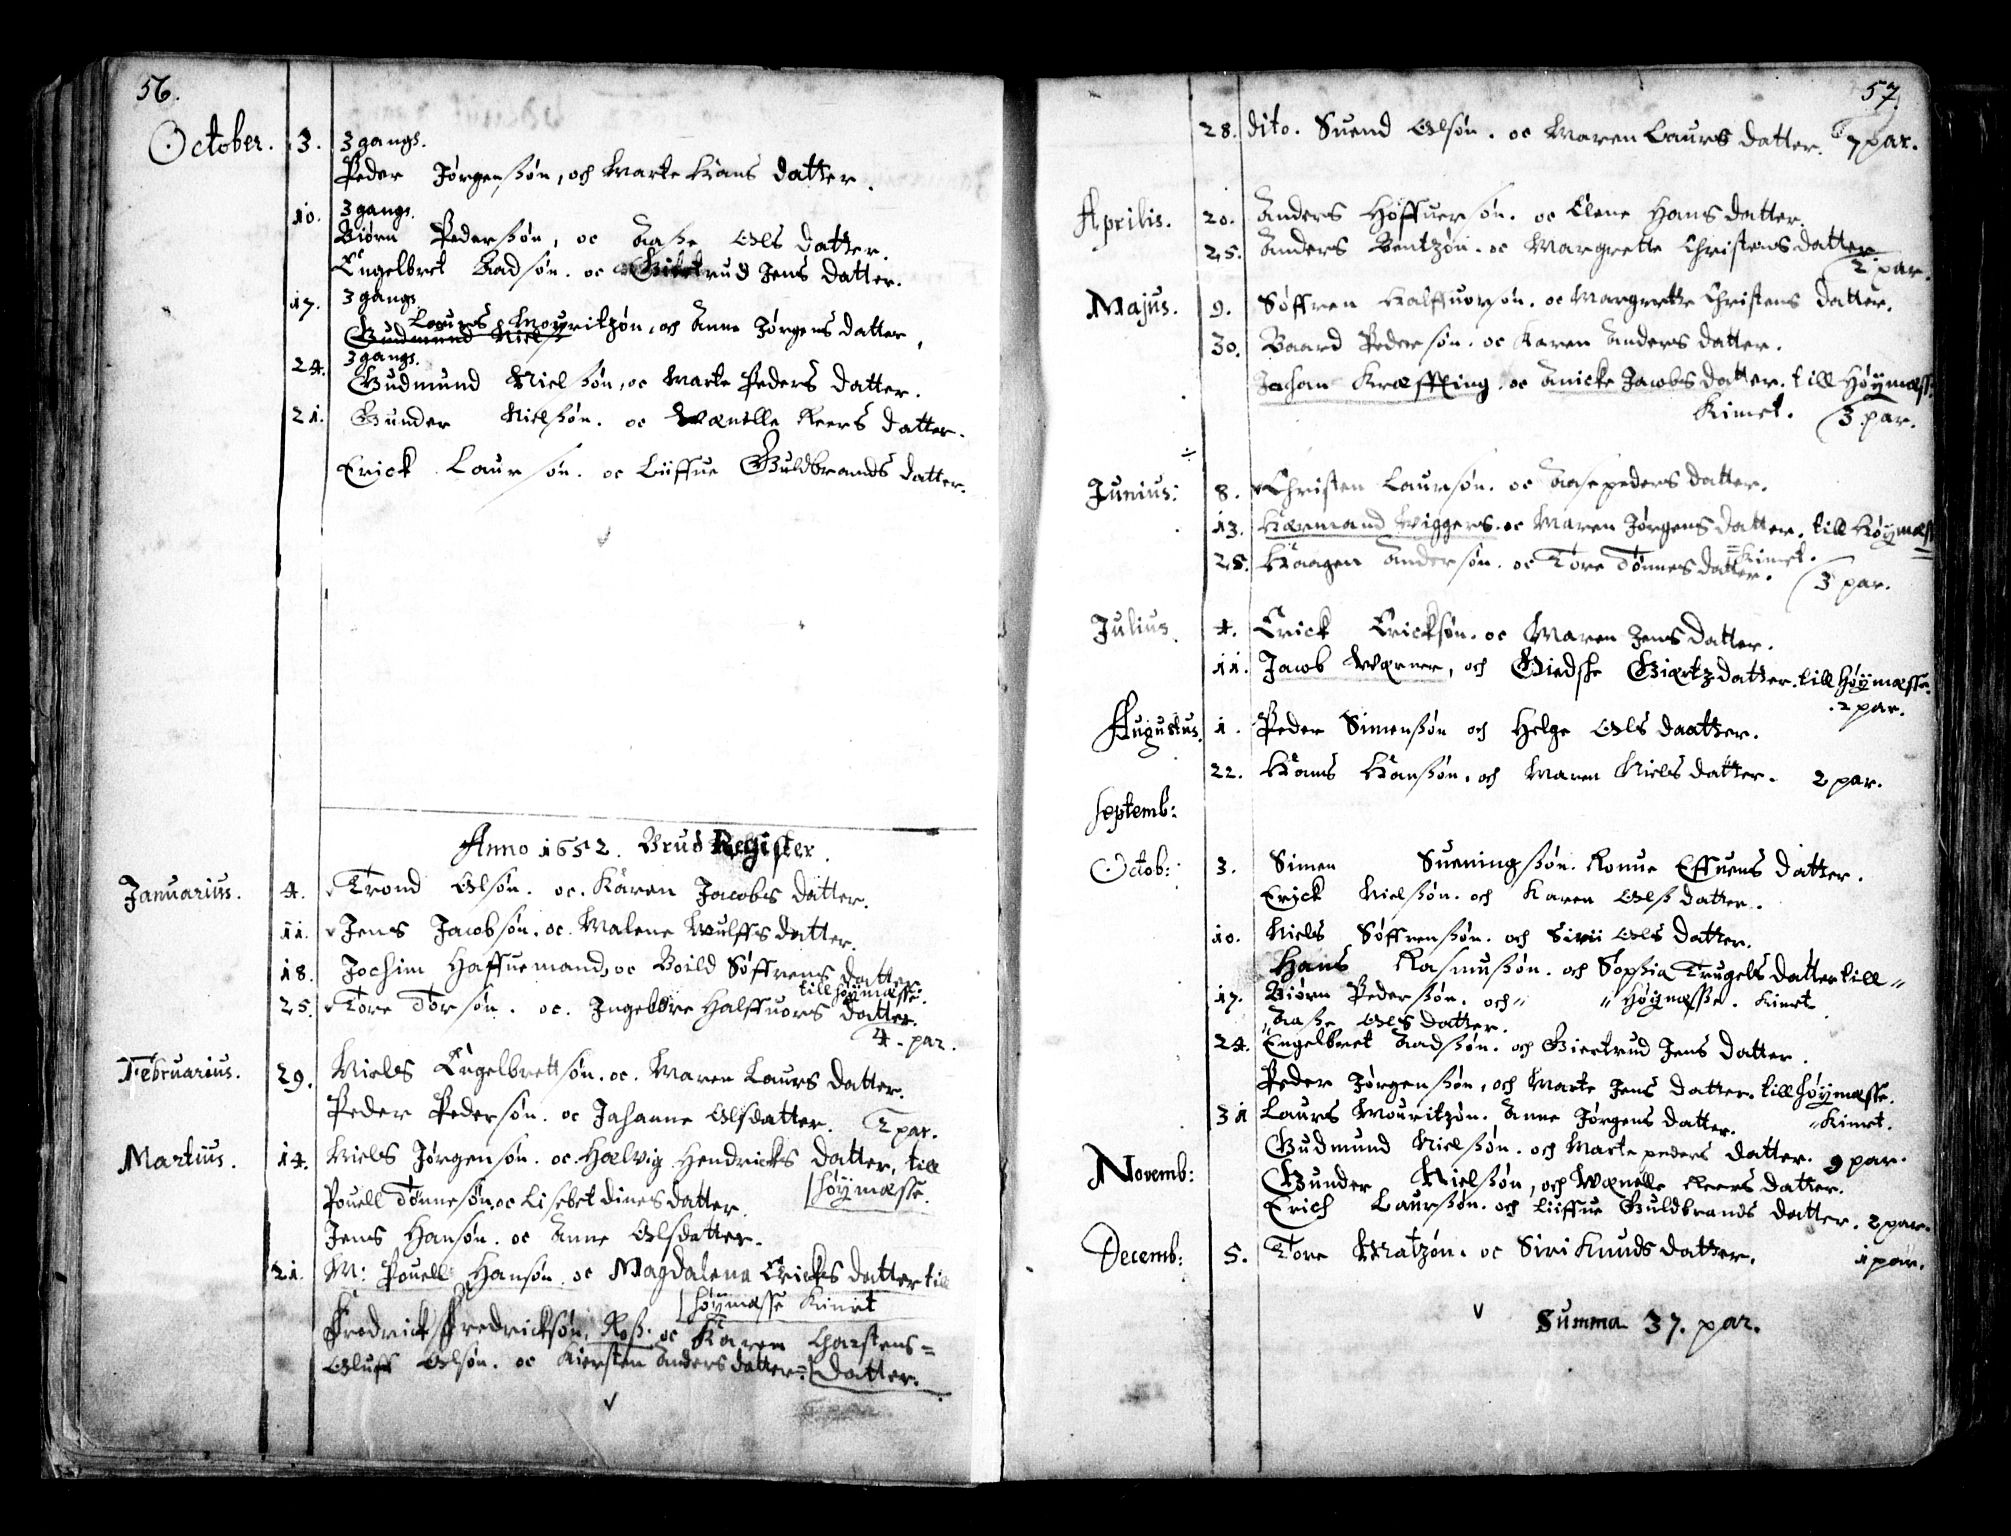 56.
October. 3. 3 gangs.
Peder Jørgenssøn, och Marte Hans datter.
10. 3 gangs.
Biørn Pederssøn, oc Aasse Ols datter.
Engelbret Aadsøn. oc Giertrud Jens datter.
17. 3 gangs.
Laurs Mouritzøn, och Anne Jørgens datter,
Gudmund Niels
24. 3 gangs.
Gudmund Nielssøn, oc Marte Peders datter.
21. Gunder Nielssøn. oc Wænelle Reers datter.
Erick Laursøn. oc Liiffue Guldbrands datter.
Anno 1652. Brud Register.
Januarius. 4. Trond Olsøn. oc. Karen Jacobs datter.
11. Jens Jacobsøn. oc. Malene Wulffs datter.
18. Jochim Haffuemand, oc Boild Søffrens datter.
till Høymæsse.
25. Tore Torsøn. oc. Ingebore Halffuors datter.
4. par.
Februarius. 29. Niels Engelbrettsøn. oc. Maren Laurs datter.
Peder Pedersøn. oc Johanne Olsdatter. 2 par.
Martius. 14. Niels Jørgensøn. oc. Hælvig Hendricks datter, till
Høymæsse.
Pouell Tønnesøn. oc Lisebet dines datter.
Jens Hansøn. oc Anne Olsdatter.
21. M: Pouell Hansøn. oc Magdalena Ericks datter till
Høymæsse Kimet
Fredrick Fredricksøn, Ross. oc Karen Charstens=
datter.
Oluff Olsøn. oc Kiersten Anders datter.
57
28. dito. Suend Olsøn. oc Maren Laurs datter. 7 par.
Aprilis. 20. Anders Høffuersøn. oc Elene Hans datter.
25. Anders Bentzøn. oc Margrette Christens datter
2 par.
Majus. 9. Søffren Halffuorsøn. oc Margrette Christens datter.
30. Baard Pedersøn. oc Karen Anders datter.
Johan Kræffting. oc Anicke Jacobs datter. till Høymæss=
Kimet. 3 par.
Junius: 8. Christen Laursøn. oc Aase peders datter.
13. Hærmand Wiggers. oc Maren Jørgens datter. till Høymæss
=Kimet.
25. Haagen Andersøn. oc Tore Tønnes datter. 3 par.
Julius. 4. Erick Ericksøn. oc Maren Jens datter.
11. Jacob Wærner, och Giedske Giærtz datter. till Høymæsse.
2 par.
Augustus. 1. Peder Simenssøn och Helge Ols daatter.
22. Hans Hanssøn. och Maren Niels datter. 2 par.
Septemb:
Octob: 3. Simen Sueningssøn. Ronue Effuens datter.
Erick Nielssøn. och Karen Olss datter.
10. Niels Søffrenssøn. och Sirii Ols datter.
Hans Rasmussøn. och Sophia Trugels datter till "
" Høymæsse. Kimet.
17. Biørn Pederssøn. och "
" Aasse Ols datter.
24. Engelbret Aadssøn. och Giertrud Jens datter.
Peder Jørgenssøn, och Marte Jens datter. till Høymæsse.
"Kimet.
31 Laurs Mouritzøn. Anne Jørgens datter.
Gudmund Nielssøn. och Marte peders datter. 9 par.
Novemb: Gunder Nielssøn, och Wænelle Reers datter.
Erich Laurssøn. och Liiffue Guldbrands datter. 2 par.
Decemb: 5. Tore Matzøn. oc Siri Knuds datter. 1 par.
Summa 37. par.